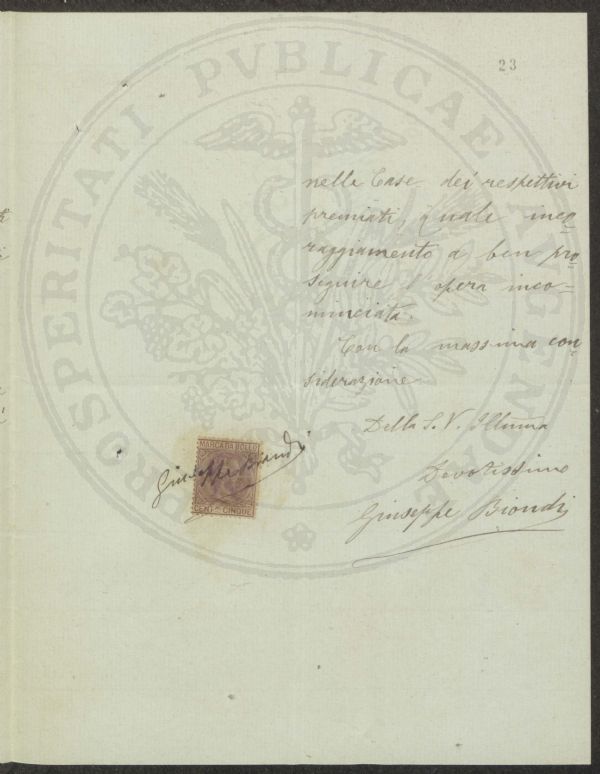 23
PROSPERITATI PVBLICAE AVGENDAE
nelle Case dei respettivi
premiati, quale inco=
raggiamento a ben pro=
seguire l'opera inco=
minciata.
Con la massima con=
siderazione
Della S. V. Illuma
Devotissimo
Giuseppe Biondi
MARCA DA BOLLO
Giuseppe Biondi
CENT. CINQUE